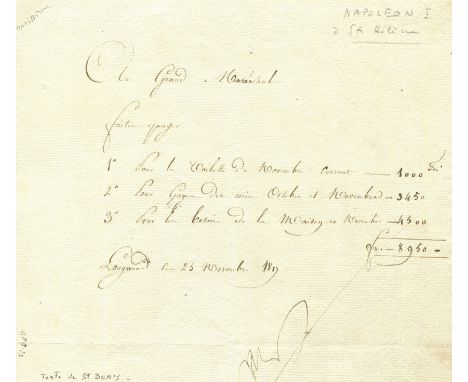 NAPOLEON I
à Ste Hélène
Au Grand Maréchal
faites payer
1° Pour la Toilette de Novembre Courant — 1000 Fr.
2° Pour Gages des mois Octobre et Novembre — 3450
3° Pour les besoins de la Maison en Novembre — 4500
fr. — 8950 —
Longwood le 25 Novembre 1817
Texte de St DENIS -